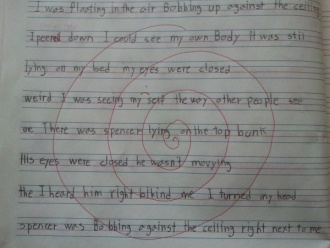 I was floating in the air Bobbing up against the ceiling
I peered down I could see my own Body It was still
lying on my bed my eyes were closed
weird I was seeing my self the way other people see
me There was spencer lying on the top bunk
His eyes were closed he wasn't movying
the I heard him right bihind me I turned my head
spencer was Bobbing against the ceiling right next to me